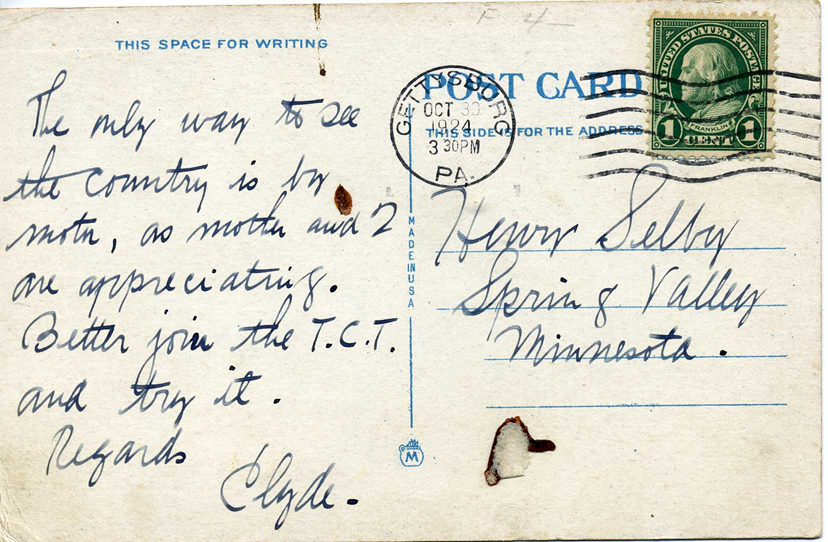 F 4—
THIS SPACE FOR WRITING
The only way to see
the country is by
moto, as mother and I
are appreciating.
Better join the T.C.T.
and try it.
Regards
Clyde.
POST CARD
THIS SIDE IS FOR THE ADDRESS
GETTYSBURG
OCT 30
1924
3 30PM
PA.
UNITED STATES POSTAGE
FRANKLIN
1 CENT 1
MADE IN USA
Henry Selby
Spring Valley
Minnesota.
M